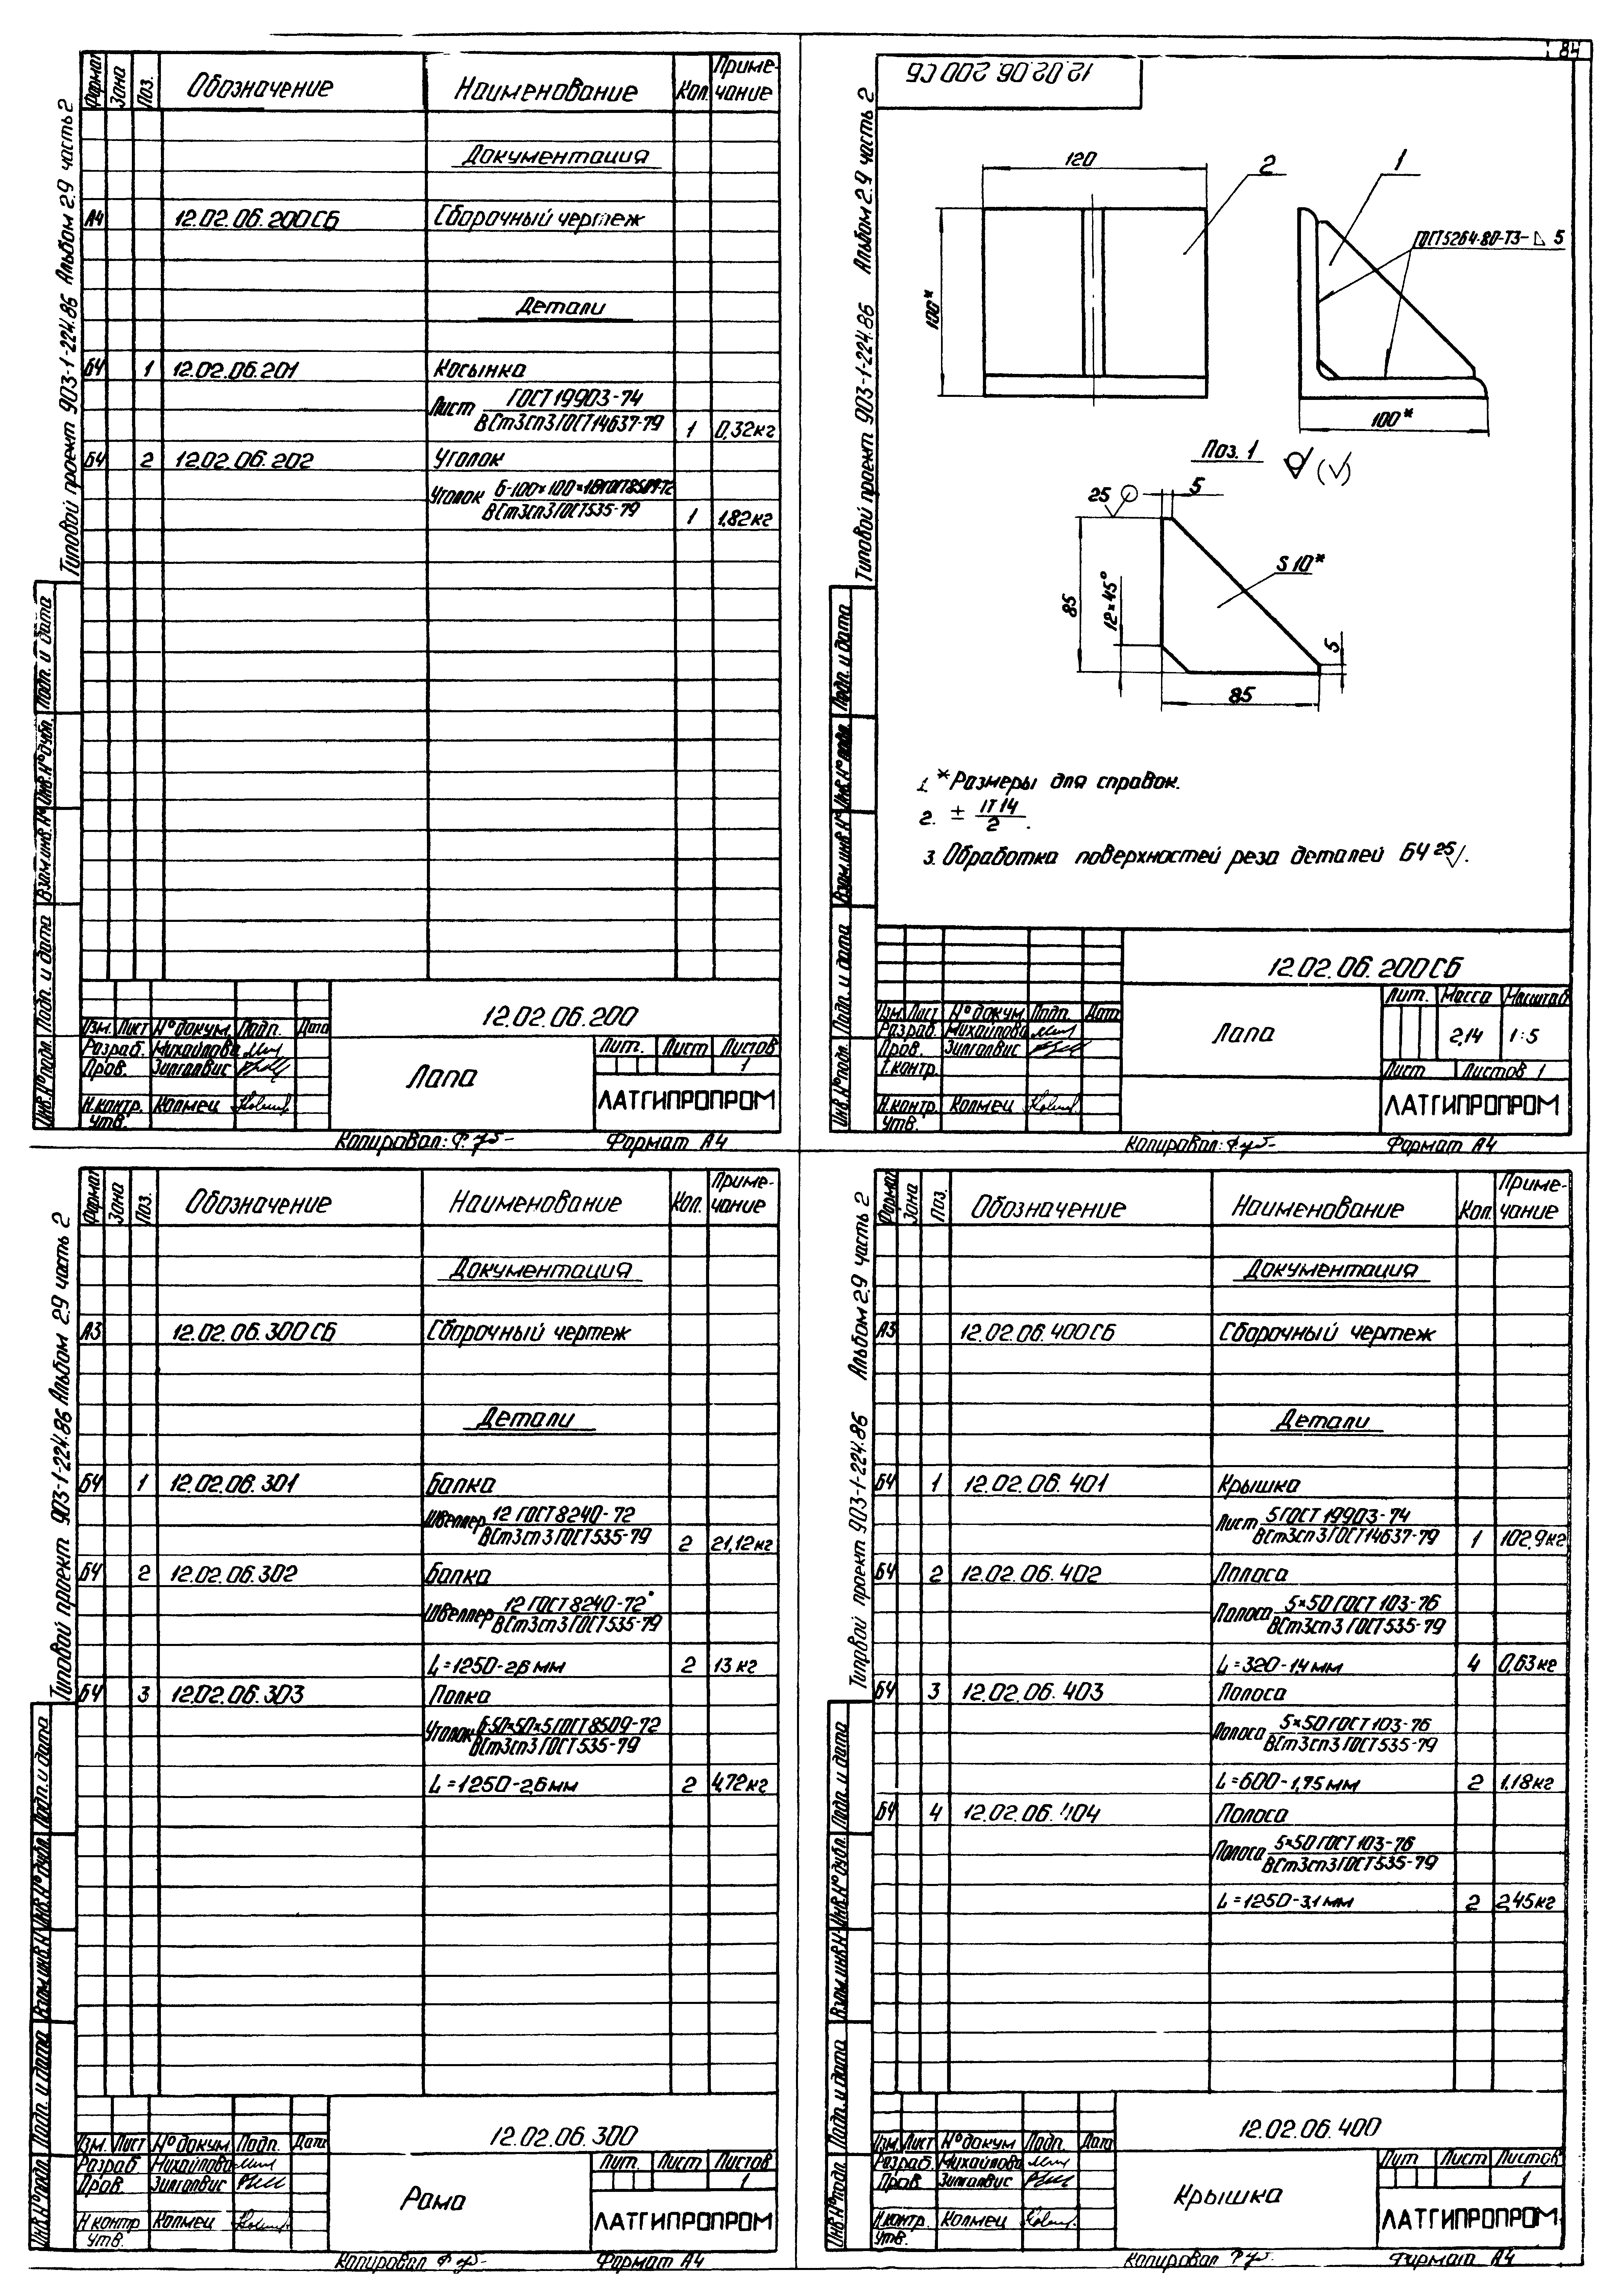 84
Типовой проект 903-1-224.86 Альбом 2.9 часть 2
Формат
Зона
Поз.
Обозначение
Наименование
Кол.
Приме-
чание
Документация
А4 12.02.06.200СБ Сборочный чертеж
Детали
БЧ 1 12.02.06.201 Косынка
Лист ГОСТ 19903-74
ВСт3сп3 ГОСТ 14637-79 1 0,32кг
БЧ 2 12.02.06.202 Уголок
Уголок
ВСт3сп3 ГОСТ 535-79 1 1,82кг
Подп. и дата
Инв.N°дубл.
Взам.инв.N°
Подп. и дата
Инв.N°подл.
Изм. Лист N°докум. Подп. Дата
Разраб. Михайлова
Пров. Зилгалвис
Н.контр. Колмец
Утв.
12.02.06.200
Лапа
Лит. Лист Листов
1
ЛАТГИПРОПРОМ
Копировал:
Формат А4
Типовой проект 903-1-224.86 Альбом 2.9 часть 2
12.02.06.200СБ
120
2
1
ГОСТ 5264-80-Т3-◺ 5
100*
100*
Поз. 1
(√)
25
5
S 10*
85
12×45°
5
85
1. *Размеры для справок.
2. ± IT14
2 .
3. Обработка поверхностей реза деталей БЧ 25√.
Подп. и дата
Взам.инв.N°
Подп. и дата
Инв.N°подл.
Изм. Лист N°докум. Подп. Дата
Разраб. Михайлова
Пров. Зилгалвис
Т.контр.
Н.контр. Колмец
Утв.
12.02.06.200СБ
Лапа
Лит. Масса Масштаб
2,14 1:5
Лист Листов 1
ЛАТГИПРОПРОМ
Копировал:
Формат А4
Типовой проект 903-1-224.86 Альбом 2.9 часть 2
Формат
Зона
Поз.
Обозначение
Наименование
Кол.
Приме-
чание
Документация
А3 12.02.06.300СБ Сборочный чертеж
Детали
БЧ 1 12.02.06.301 Балка
Швеллер 12 ГОСТ 8240-72
ВСт3сп3 ГОСТ 535-79 2 21,12кг
БЧ 2 12.02.06.302 Балка
Швеллер 12 ГОСТ 8240-72
ВСт3сп3 ГОСТ 535-79
L=1250-2,6 мм 2 13 кг
БЧ 3 12.02.06.303 Полка
Уголок Б-50×50×5 ГОСТ 8509-72
ВСт3сп3 ГОСТ 535-79
L=1250-2,6 мм 2 4,72кг
Подп. и дата
Инв.N°дубл.
Взам.инв.N°
Подп. и дата
Инв.N°подл.
Изм. Лист N°докум. Подп. Дата
Разраб. Михайлова
Пров. Зилгалвис
Н.контр. Колмец
Утв.
12.02.06.300
Рама
Лит. Лист Листов
1
ЛАТГИПРОПРОМ
Копировал
Формат А4
Типовой проект 903-1-224.86 Альбом 2.9 часть 2
Формат
Зона
Поз.
Обозначение
Наименование
Кол.
Приме-
чание
Документация
А3 12.02.06.400СБ Сборочный чертеж
Детали
БЧ 1 12.02.06.401 Крышка
Лист 5 ГОСТ 19903-74
ВСт3сп3 ГОСТ 14637-79 1 102,9кг
БЧ 2 12.02.06.402 Полоса
Полоса 5×50 ГОСТ 103-76
ВСт3сп3 ГОСТ 535-79
L=320-1,4 мм 4 0,63кг
БЧ 3 12.02.06.403 Полоса
Полоса 5×50 ГОСТ 103-76
ВСт3сп3 ГОСТ 535-79
L=600-1,75 мм 2 1,18кг
БЧ 4 12.02.06.404 Полоса
Полоса 5×50 ГОСТ 103-76
ВСт3сп3 ГОСТ 535-79
L=1250-3,1 мм 2 2,45кг
Подп. и дата
Инв.N°дубл.
Взам.инв.N°
Подп. и дата
Инв.N°подл.
Изм. Лист N°докум Подп. Дата
Разраб. Михайлова
Пров. Зилгалвис
Н.контр. Колмец
Утв.
12.02.06.400
Крышка
Лит Лист Листов
1
ЛАТГИПРОПРОМ
Копировал
Формат А4